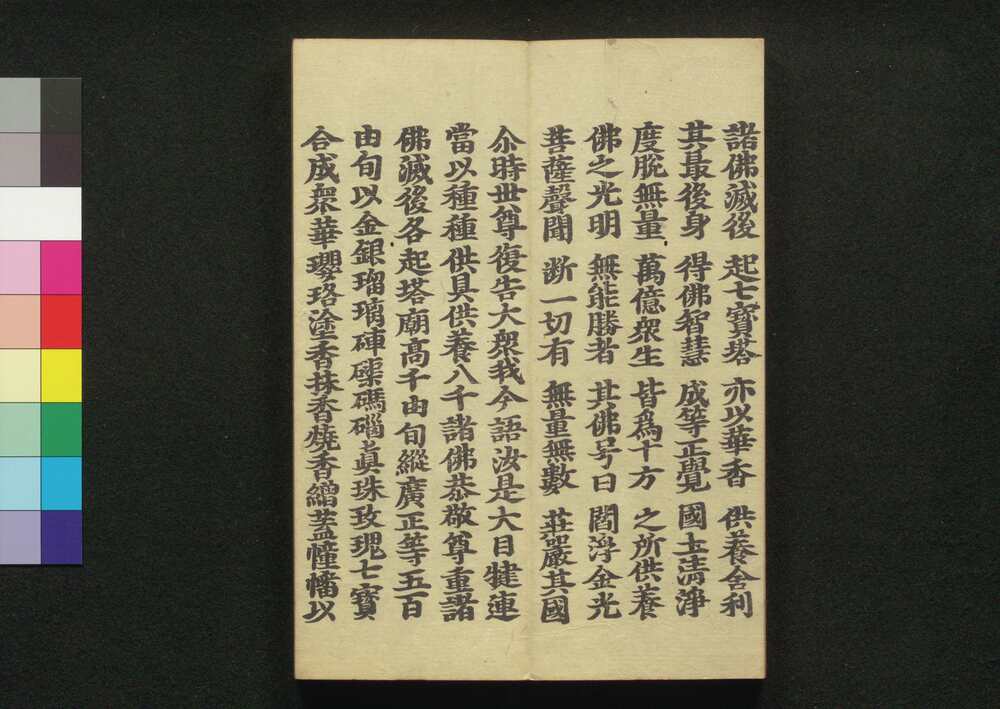 諸佛滅後 起七寶塔 亦以華香 供養舍利
其最後身 得佛智慧 成等正覺 國土清淨
度脫無量 萬億衆生 皆爲十方 之所供養
佛之光明 無能勝者 其佛号曰 閻浮金光
菩薩聲聞 断一切有 無量無數 莊嚴其國
尒時世尊復告大衆我今語汝是大目犍連
當以種種供具供養八千諸佛恭敬尊重諸
佛滅後各起塔廟高千由旬縱廣正等五百
由旬以金銀瑠璃硨磲碼碯眞珠玫瑰七寶
合成衆華瓔珞塗香抹香燒香繒蓋幢幡以